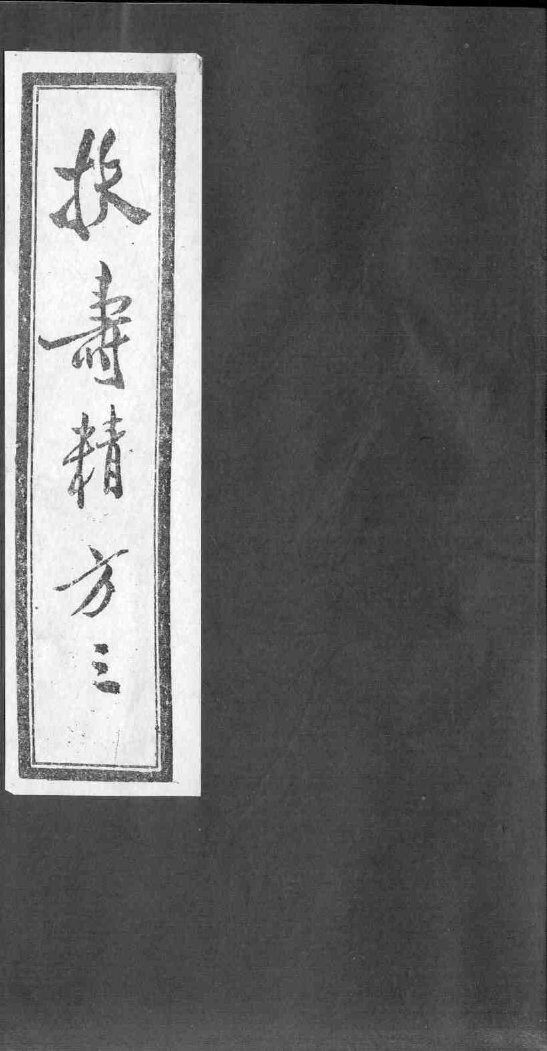 扶壽精方三